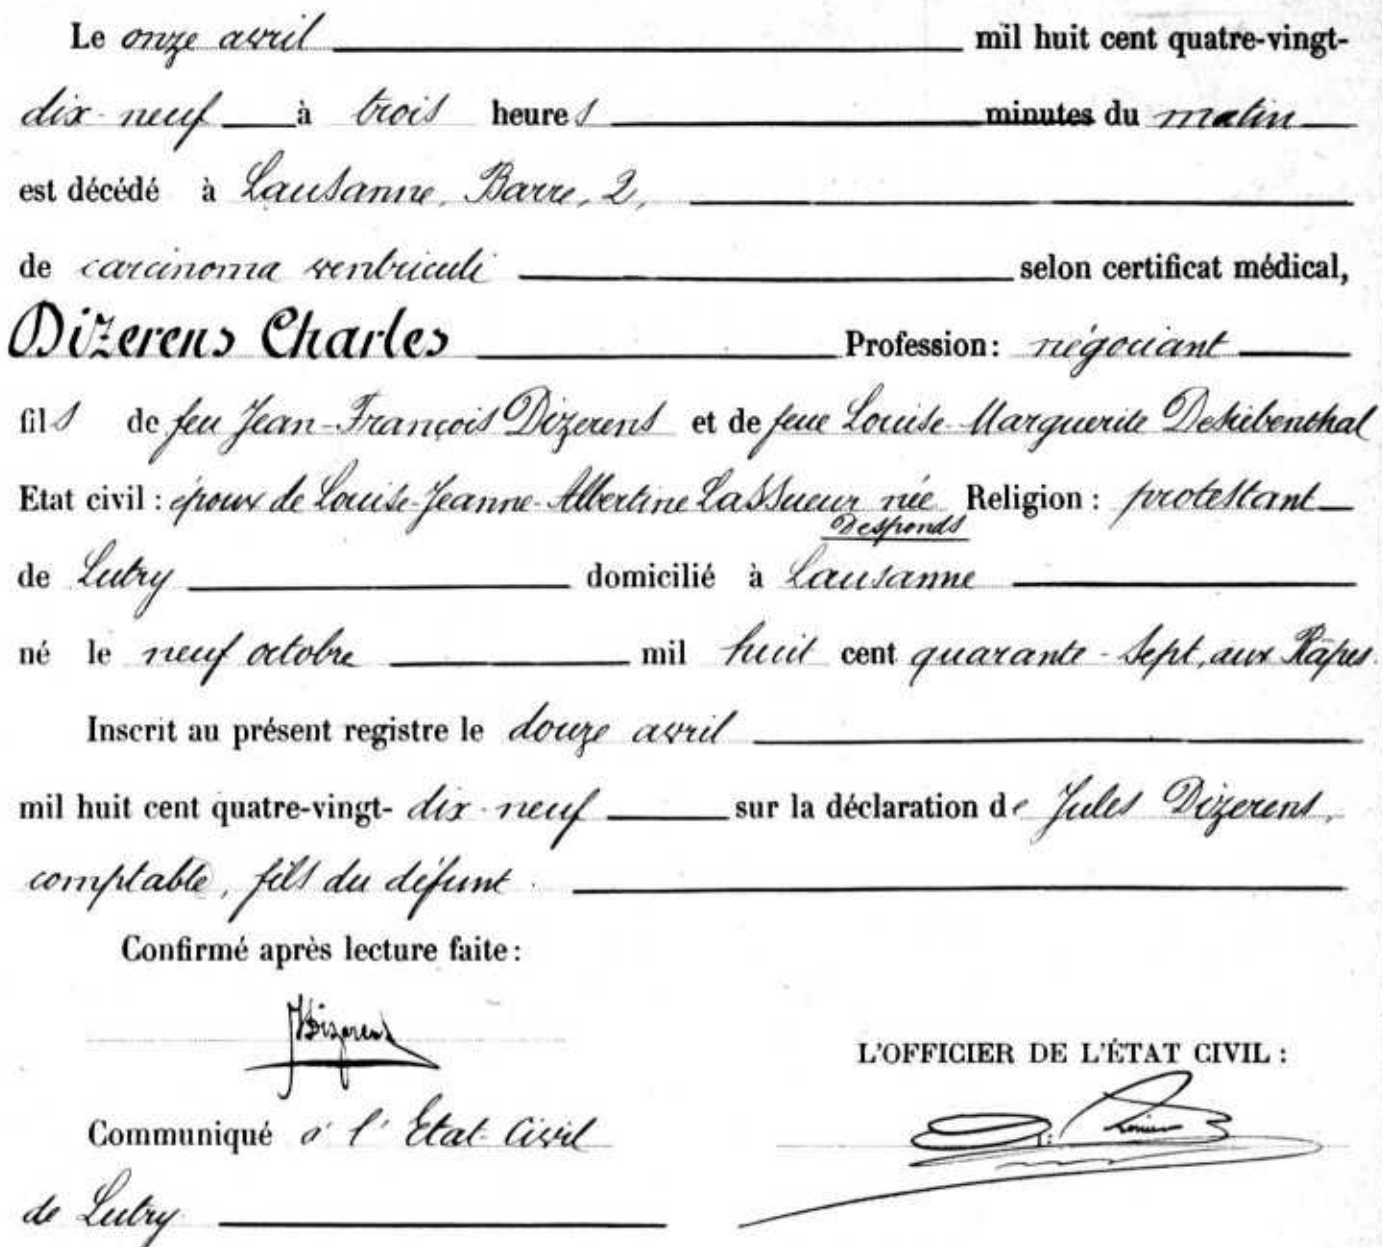 Le onze avril mil huit cent quatre-vingt-
dix-neuf à trois heures minutes du matin
est décédé à Lausanne, Barre, 2,
de carcinoma ventriculi selon certificat médical,
Dizerens Charles Profession: négociant
fils de feu Jean-François Dizerens et de feue Louise-Marguerite Desiebenthal
Etat civil : époux de Louise-Jeanne-Albertine Lassueur née Religion : protestant
Desponds
de Lutry domicilié à Lausanne
né le neuf octobre mil huit cent quarante-sept, aux Râpes.
Inscrit au présent registre le douze avril
mil huit cent quatre-vingt- dix-neuf sur la déclaration de Jules Dizerens,
comptable, fils du défunt.
Confirmé après lecture faite :
JDizerens
L'OFFICIER DE L'ÉTAT CIVIL :
Communiqué à l'Etat-Civil
de Lutry